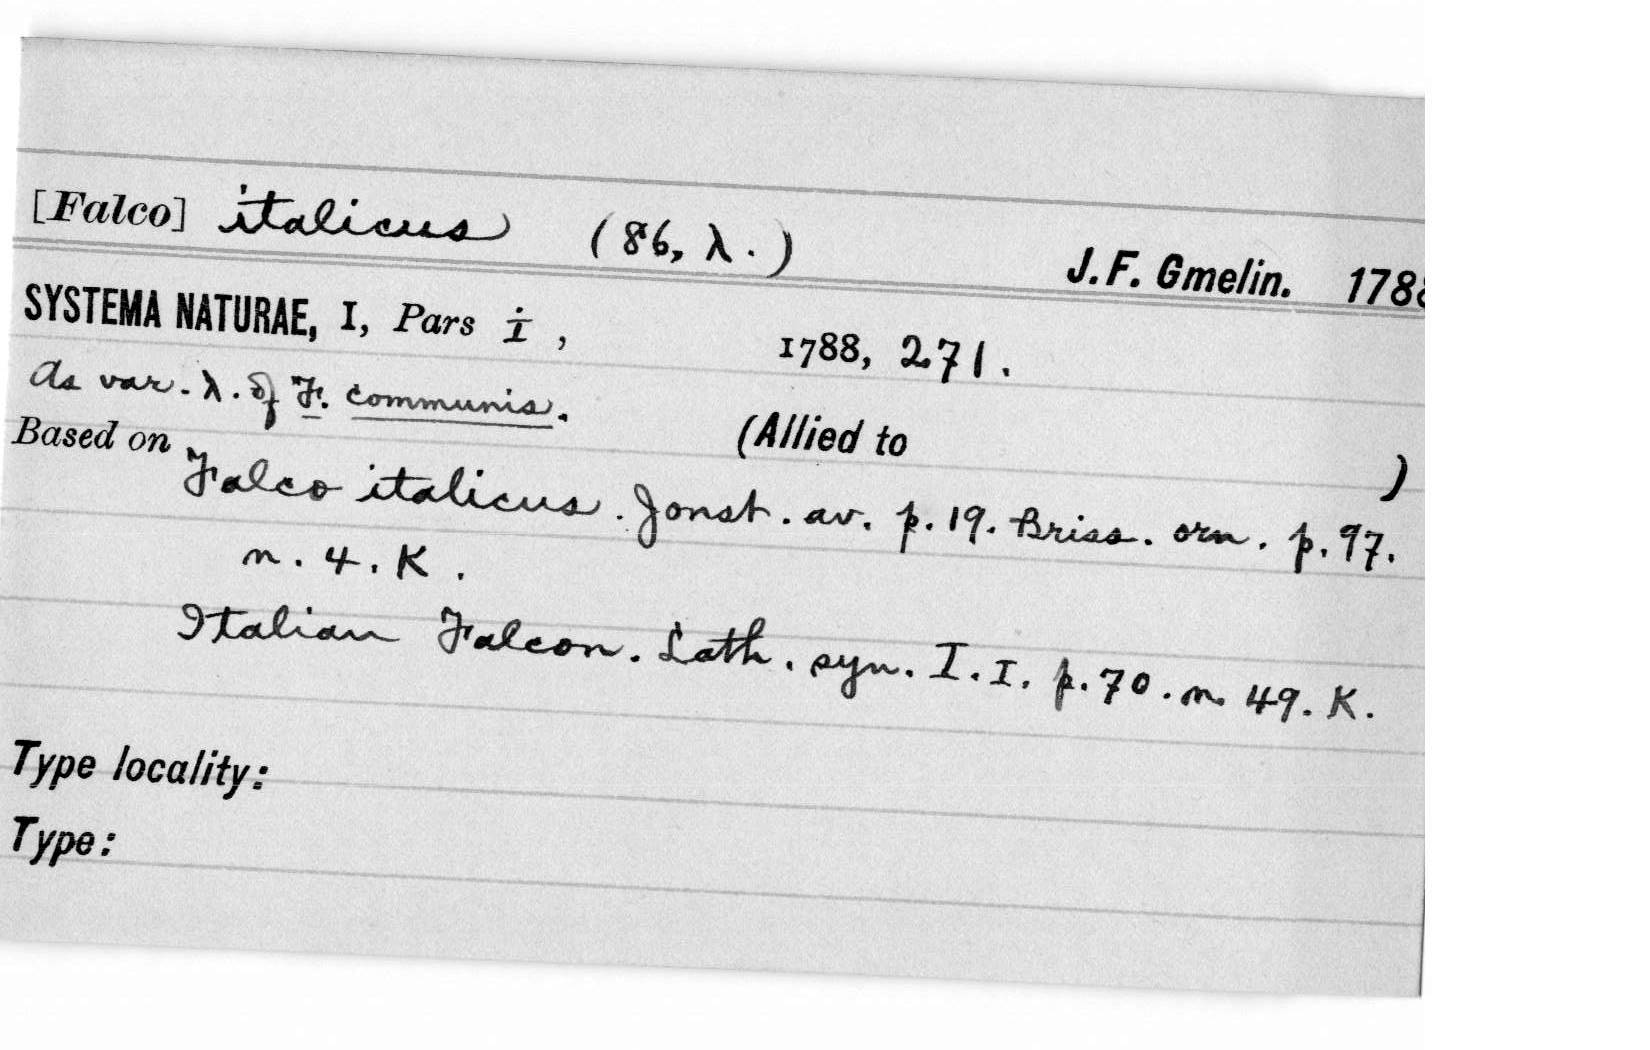 [Falco] italicus (86, λ.) J. F. Gmelin. 1788
SYSTEMA NATURAE, I, Pars i, 1788, 271.
As var. λ. of F. communis.
(Allied to )
Based on
Falco italicus. Jonst. av. p. 19. Briss. orn. p. 97.
n. 4. K.
Italian Falcon. Lath. syn. I. I. p. 70. n. 49. K.
Type locality:
Type: